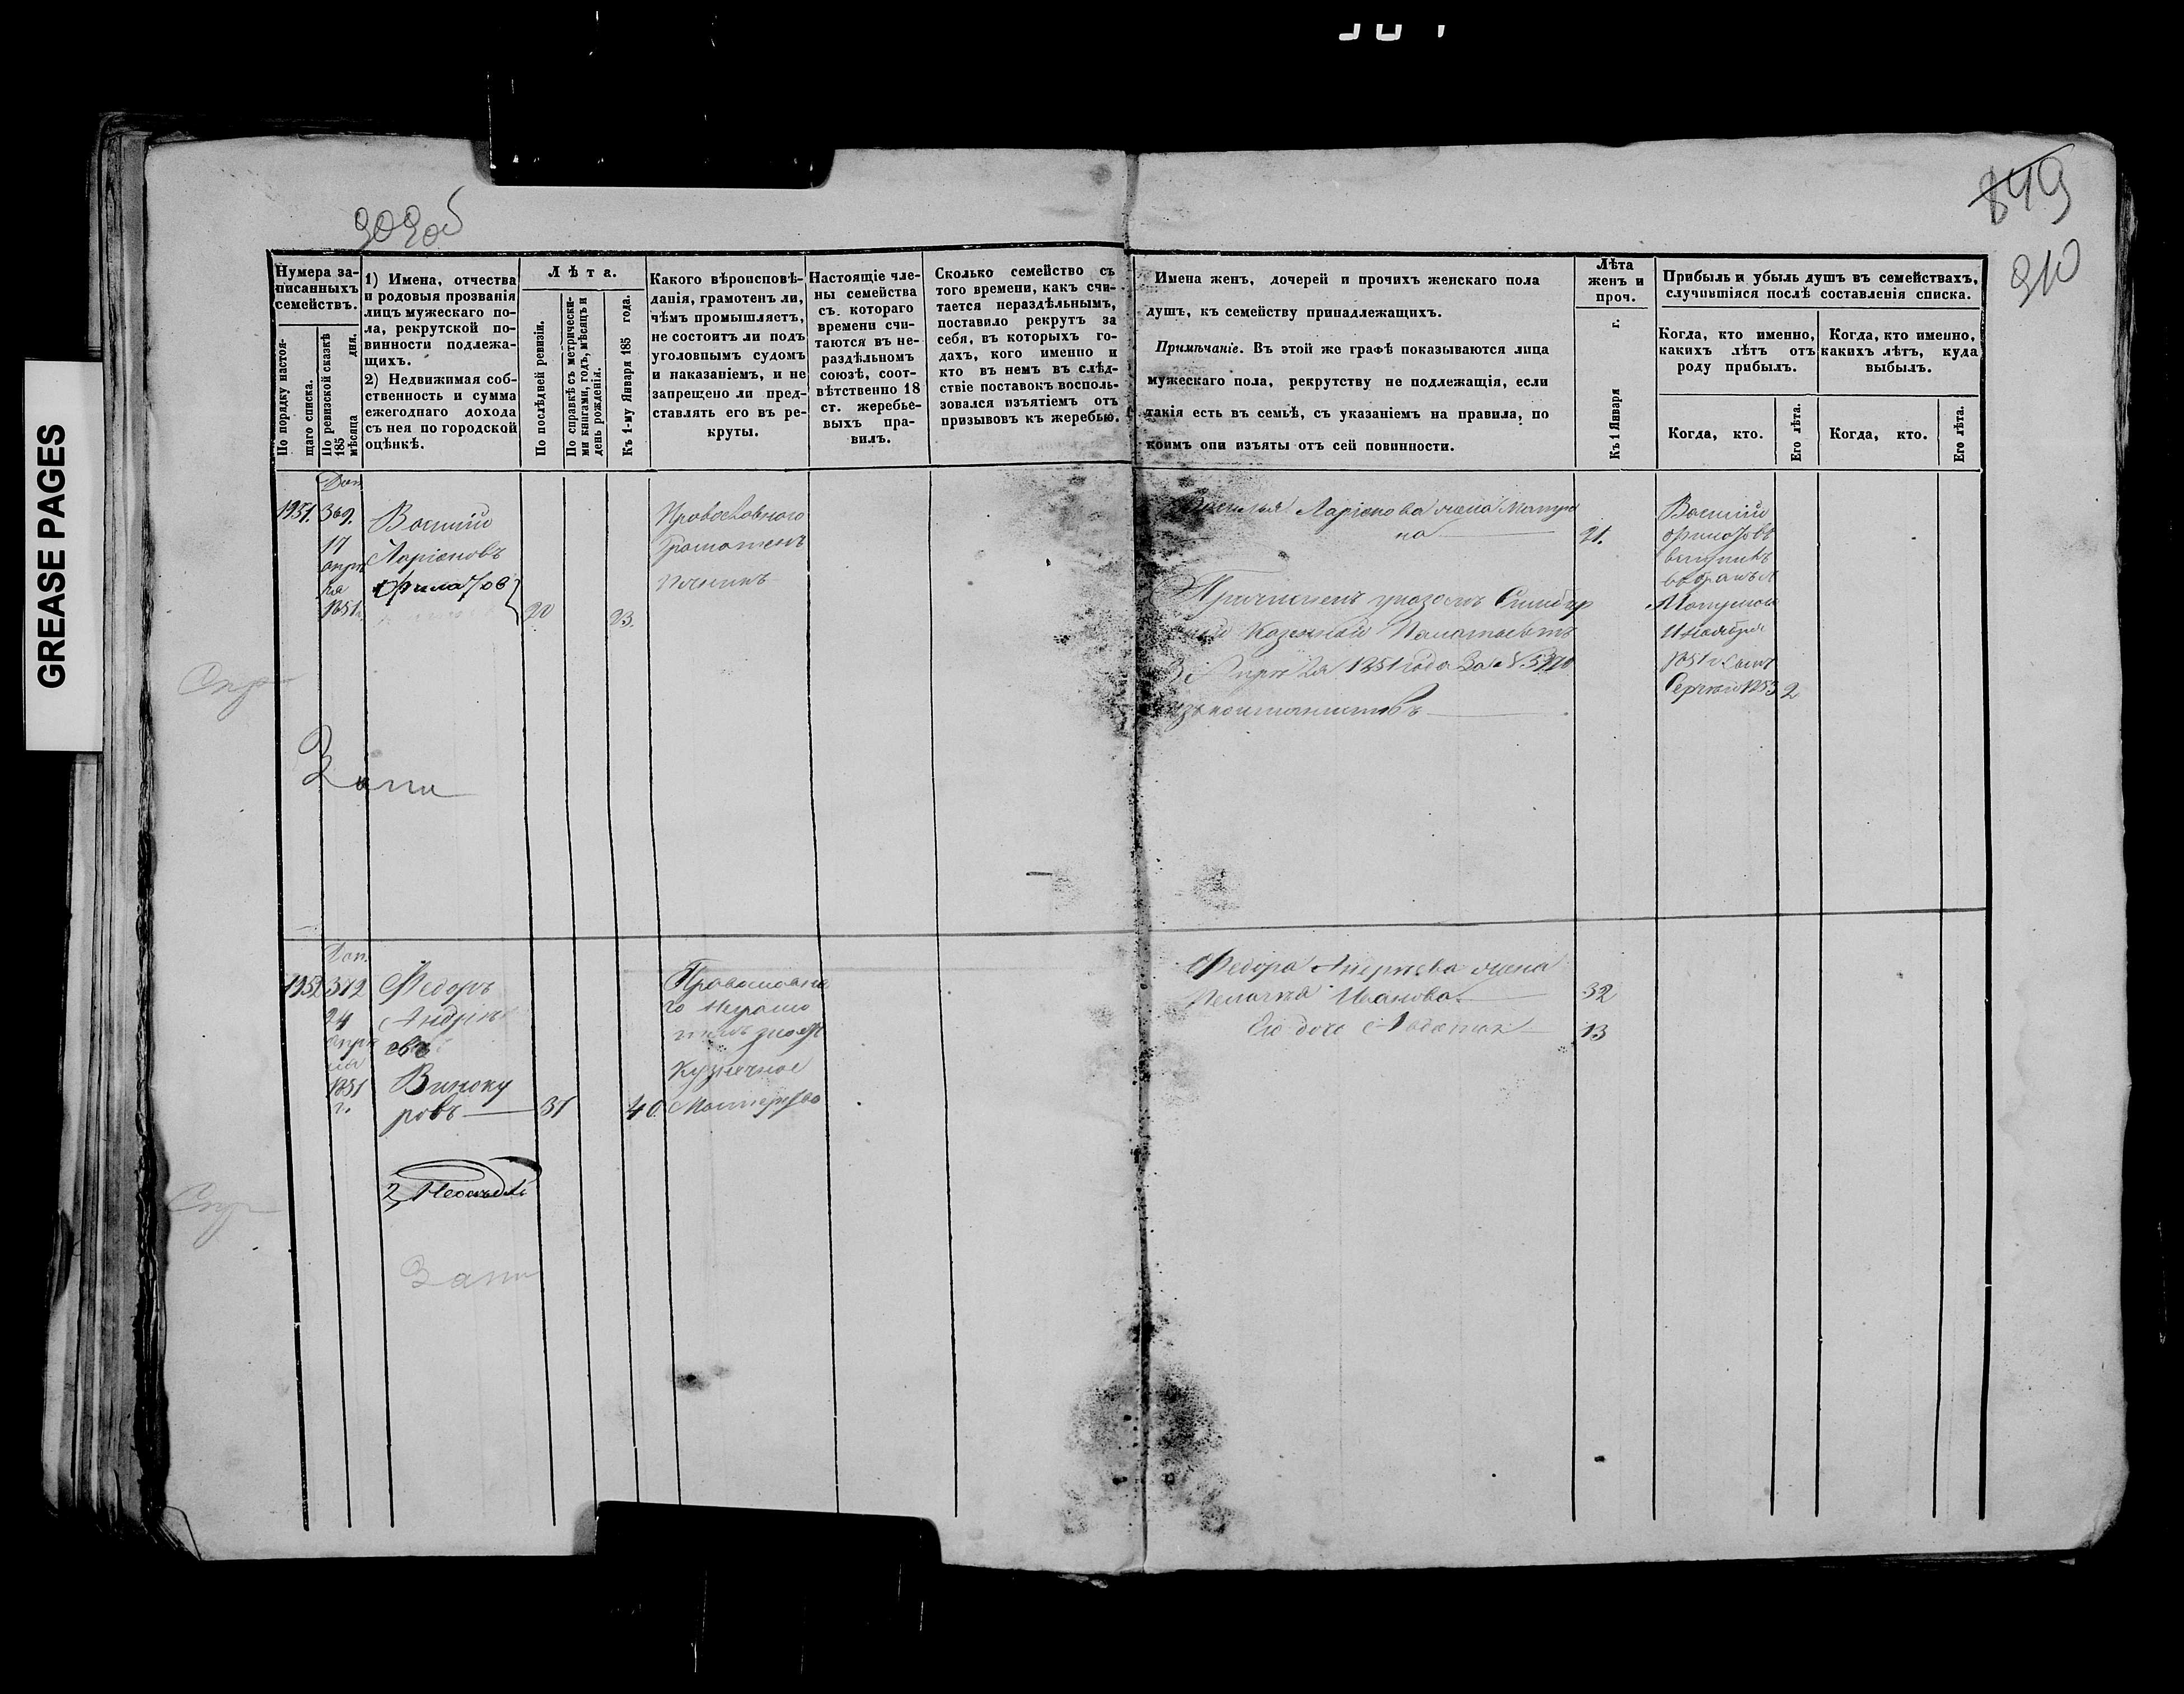 GREASE PAGES
849
910
909об
Нумера за-
писанныхъ
семействъ.
По порядку настоя-
щаго списка.
По ревизской сказкѣ
185
мѣсяца дня.
1) Имена, отчества
и родовыя прозванія
лицъ мужескаго по-
ла, рекрутской по-
винности подлежа-
щихъ.
2) Недвижимая соб-
ственность и сумма
ежегоднаго дохода
съ нея по городской
оцѣнкѣ.
Лѣта.
По послѣдней ревизіи.
По справкѣ съ метрически-
ми книгами, годъ, мѣсяцъ и
день рожденія.
Къ 1-му Января 185 года.
Какого вѣроисповѣ-
данія, грамотенъ ли,
чѣмъ промышляетъ,
не состоитъ ли подъ
уголовнымъ судомъ
и наказаніемъ, и не
запрещено ли пред-
ставлять его въ ре-
круты.
Настоящіе чле-
ны семейства
съ котораго
времени счи-
таются въ не-
раздѣльномъ
союзѣ, соот-
вѣтственно 18
ст. жеребье-
выхъ пра-
вилъ.
Сколько семейство съ
того времени, какъ счи-
тается нераздѣльнымъ,
поставило рекрутъ за
себя, въ которыхъ го-
дахъ, кого именно и
кто въ немъ въ слѣд-
ствіе поставокъ восполь-
зовался изъятіемъ отъ
призывовъ къ жеребью.
Имена женъ, дочерей и прочихъ женскаго пола
душъ, къ семейству принадлежащихъ.
Примѣчаніе. Въ этой же графѣ показываются лица
мужескаго пола, рекрутству не подлежащія, если
такія есть въ семьѣ, съ указаніемъ на правила, по
коимъ они изъяты отъ сей повинности.
Лѣта
женъ и
проч.
Къ 1 Января г.
Прибыль и убыль душъ въ семействахъ,
случившіяся послѣ составленія списка.
Когда, кто именно,
какихъ лѣтъ отъ
роду прибылъ.
Когда, кто именно,
какихъ лѣтъ, куда
выбылъ.
Когда, кто.
Его лѣта.
Когда, кто.
Его лѣта.
Доп.
1951. 369.
17
апрѣ
ля
1851
Василій
Ларіоновъ
Филатов
20
23.
Православнаго
Грамотенъ
Василья Ларіонова жена Матре
на
21.
Причисленъ указомъ Симбир
ской Казенной Палаты отъ
3 Апрѣля 1851 года за №
Василій
Филатовъ
вступилъ
въ бракъ съ
11 ноября
1851 г. Сынъ
Сергѣй 1853 2
Доп.
1952 372
24
апрѣ
ля
1851
г.
Федоръ
Андрѣ
евъ
Виноку
ровъ
37
40
Православна
го Неграмо
тенъ
Кузнечное
Мастерство
Федора Андрѣева жена
Пелагея Иванова
32
Его дочь
13